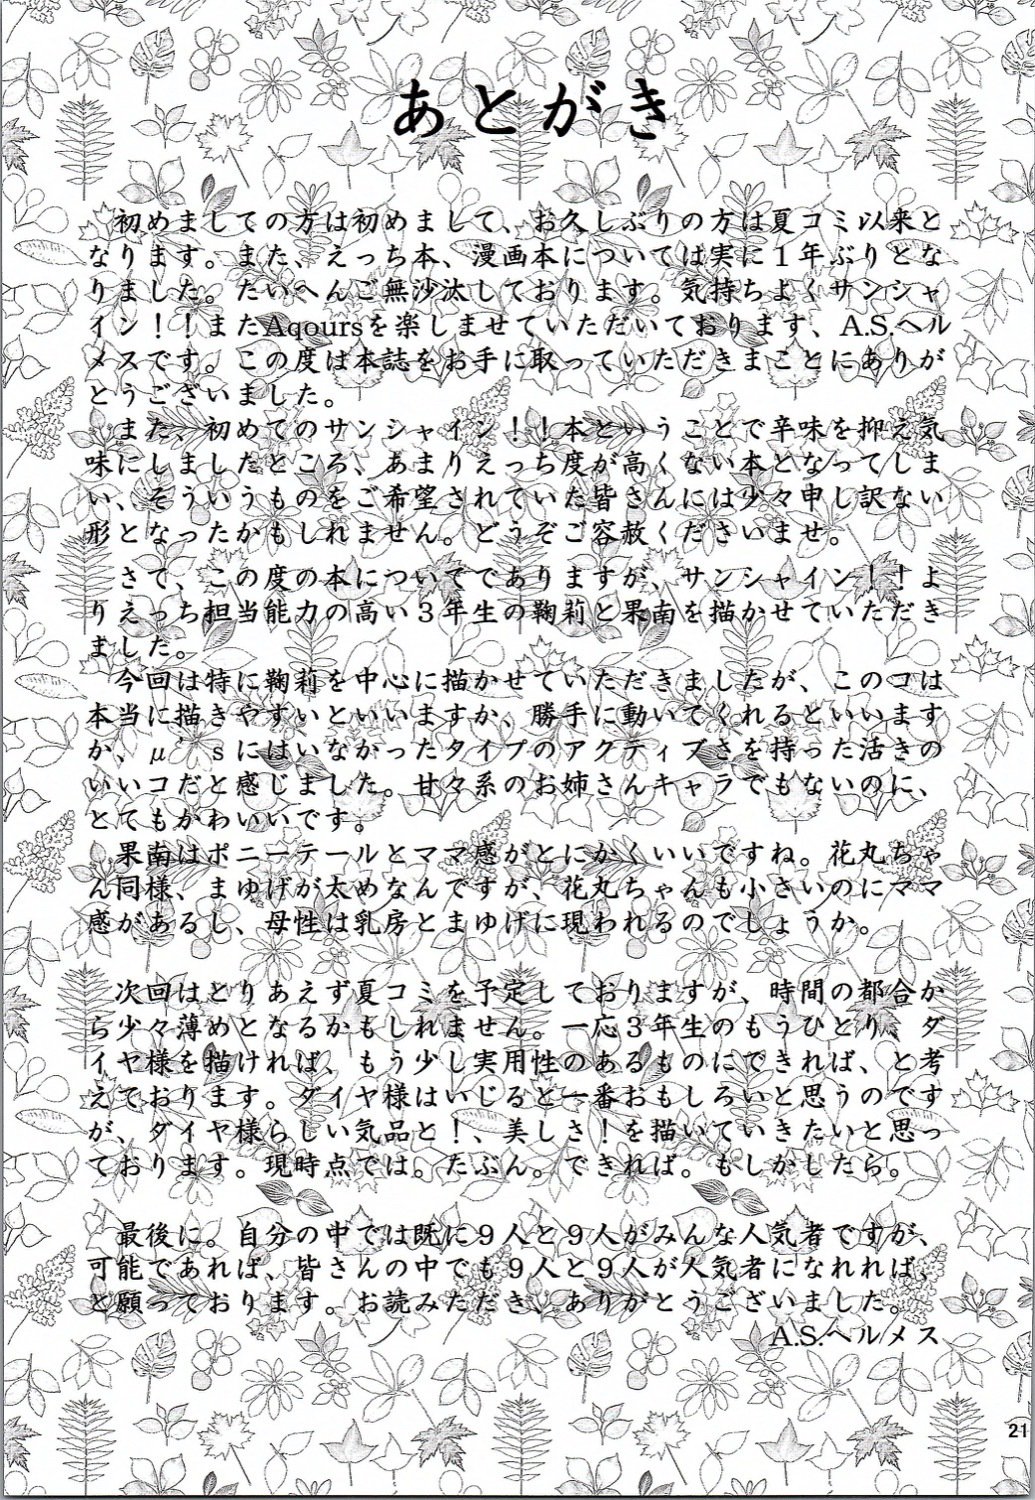 あとがき
初めましての方は初めまして、お久しぶりの方は夏コミ以来と
なります。また、えっち本、漫画本については実に１年ぶりとな
りました。たいへんご無沙汰しております。気持ちよくサンシャ
イン！！またAqoursを楽しませていただいております、A.S.ヘル
メスです。この度は本誌をお手に取っていただきまことにありが
とうございました。
また、初めてのサンシャイン！！本ということで辛味を抑え気
味にしましたところ、あまりえっち度が高くない本となってしま
い、そういうものをご希望されていた皆さんには少々申し訳ない
形となったかもしれません。どうぞご容赦くださいませ。
さて、この度の本についてでありますが、サンシャイン！！よ
りえっち担当能力の高い３年生の鞠莉と果南を描かせていただき
ました。
今回は特に鞠莉を中心に描かせていただきましたが、このコは
本当に描きやすいといいますか、勝手に動いてくれるといいます
か、μ’ｓにはいなかったタイプのアクティブさを持った活きの
いいコだと感じました。甘々系のお姉さんキャラでもないのに、
とてもかわいいです。
果南はポニーテールとママ感がとにかくいいですね。花丸ちゃ
ん同様、まゆげが太めなんですが、花丸ちゃんも小さいのにママ
感があるし、母性は乳房とまゆげに現われるのでしょうか。
次回はとりあえず夏コミを予定しておりますが、時間の都合か
ら少々薄めとなるかもしれません。一応３年生のもうひとり、ダ
イヤ様を描ければ、もう少し実用性のあるものにできれば、と考
えております。ダイヤ様はいじると一番おもしろいと思うのです
が、ダイヤ様らしい気品と！、美しさ！を描いていきたいと思っ
ております。現時点では。たぶん。できれば。もしかしたら。
最後に。自分の中では既に９人と９人がみんな人気者ですが、
可能であれば、皆さんの中でも９人と９人が人気者になれれば、
と願っております。お読みただき、ありがとうございました。
A.S.ヘルメス
21